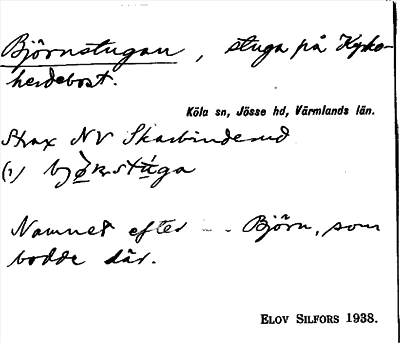 Björnstugan, stuga på Kyrko-
herdebost.
Köla sn, Jösse hd, Värmlands län.
Strax NV Skarbinderud
(1)
Namnet efter - - Björn, som
bodde där.
ELOV SILFORS 1938.